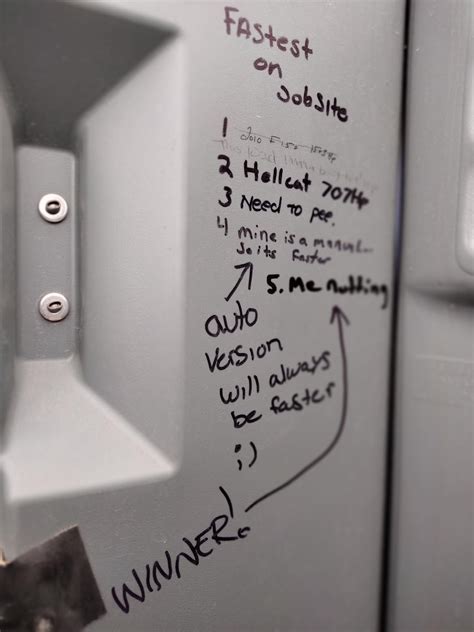 FAStest
on
JobSite
1 2010
This load
2 Hellcat 707Hp
3 Need to pee.
4 mine is a manual...
So its Faster
5. Me nutting
auto
version
will always
be faster
;)
WINNER!